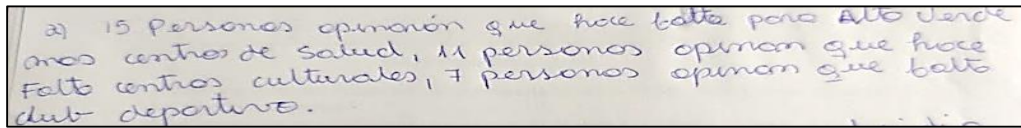 a) 15 Personas opinarón que hace falta para Alto Verde
mas centros de salud, 11 personas opinan que hace
Falta centros culturales, 7 personas opinan que falta
club deportivo.